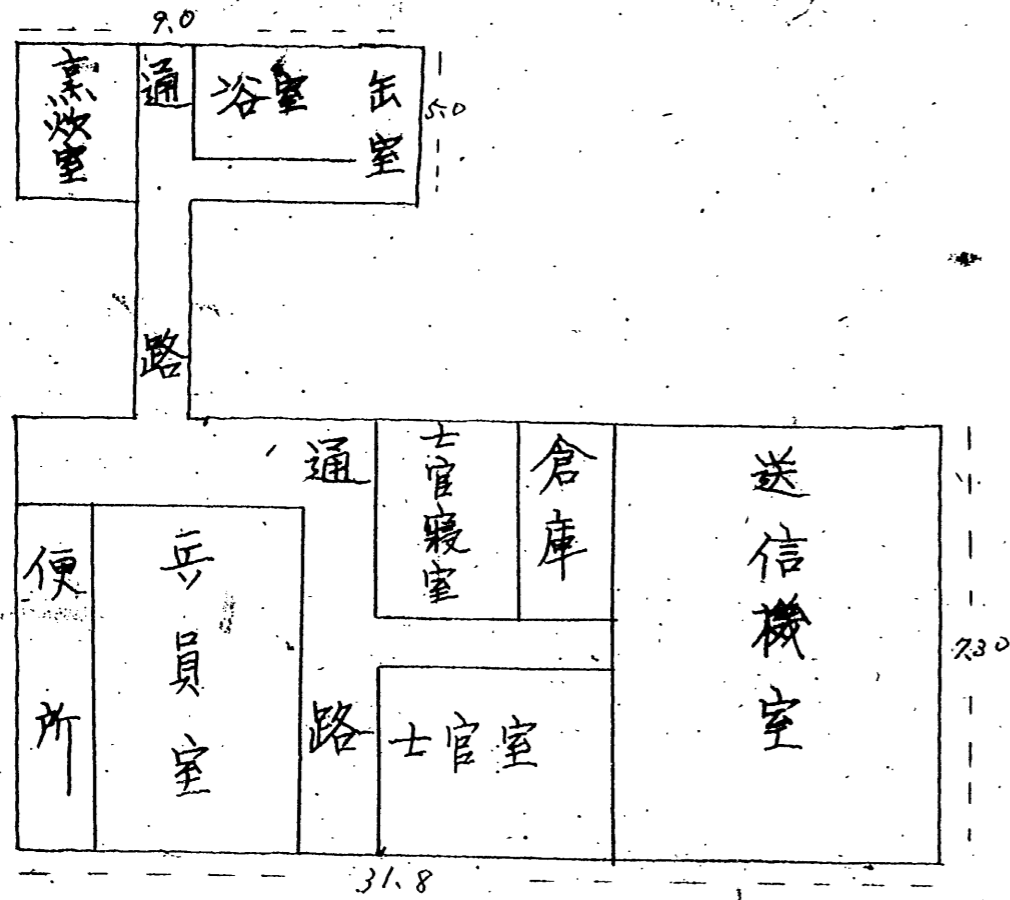 9.0
烹炊室
通路
浴室
缶室
5.0
通路
士官寝室
倉庫
送信機室
便所
兵員室
士官室
7.30
31.8